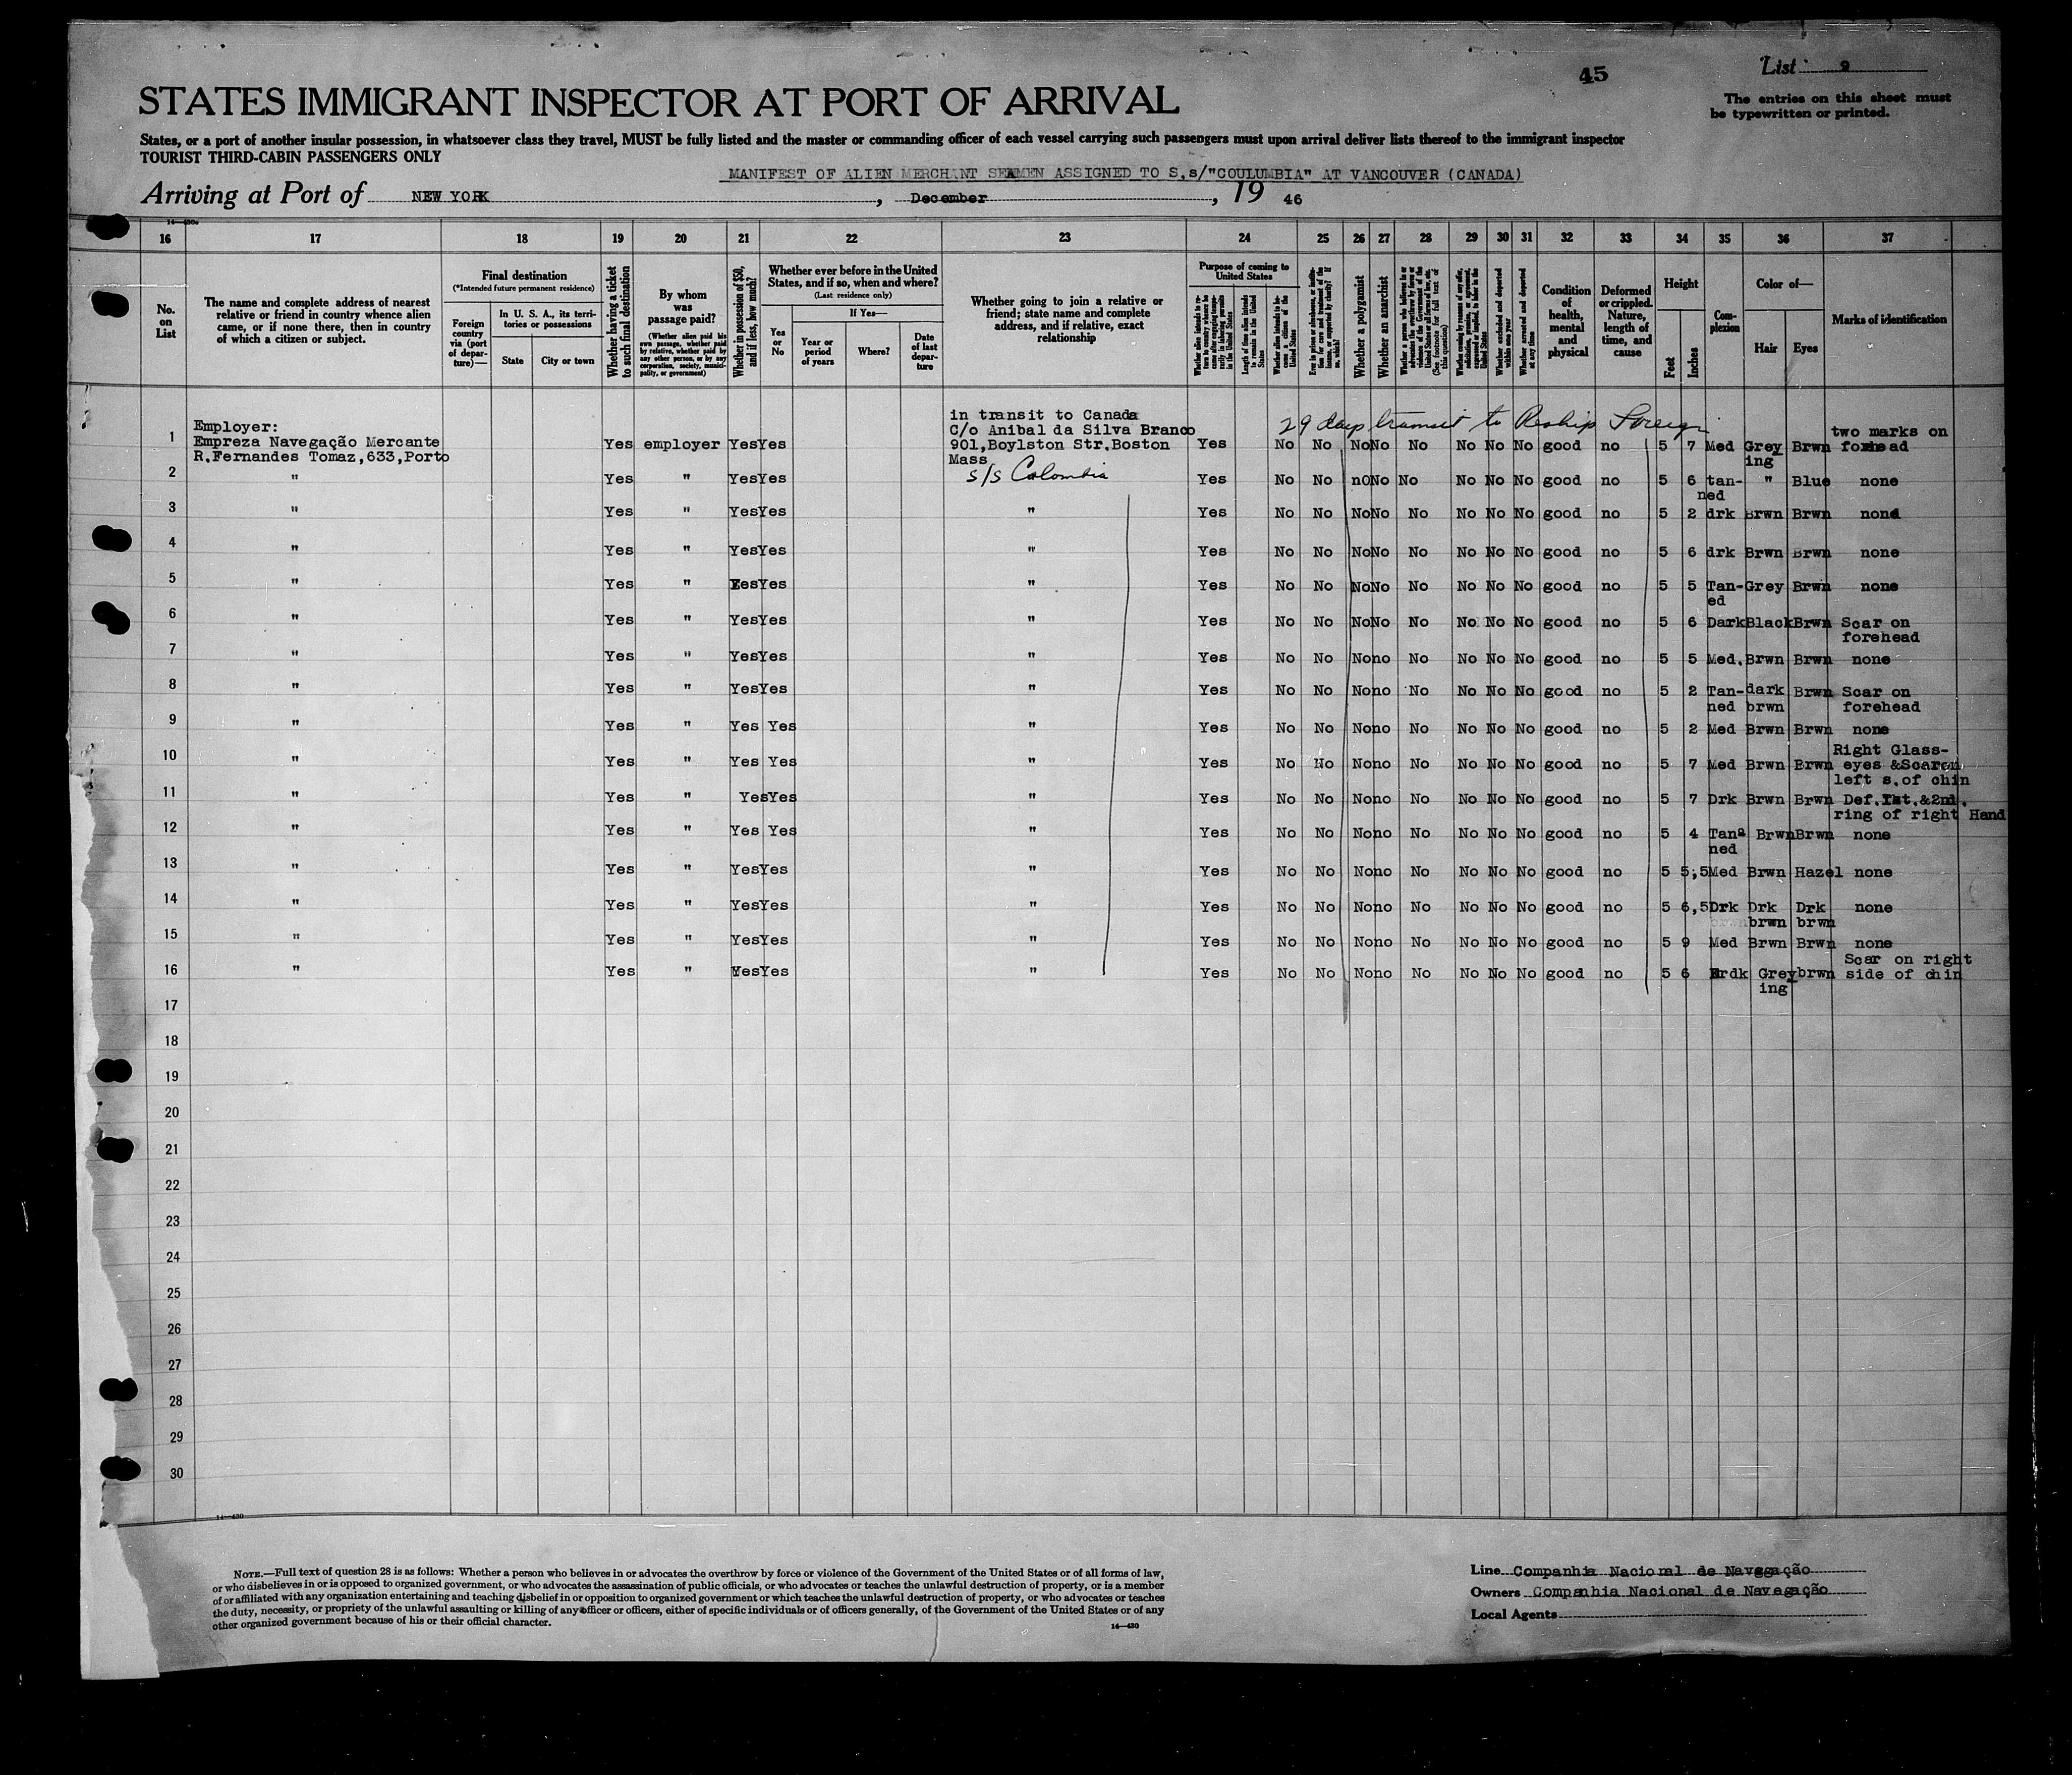 45
List 9
STATES IMMIGRANT INSPECTOR AT PORT OF ARRIVAL
The entries on this sheet must
be typewritten or printed.
States, or a port of another insular possession, in whatsoever class they travel, MUST be fully listed and the master or commanding officer of each vessel carrying such passengers must upon arrival deliver lists thereof to the immigrant inspector
TOURIST THIRD-CABIN PASSENGERS ONLY
MANIFEST OF ALIEN MERCHANT SEAMEN ASSIGNED TO S.s/"COULUMBIA" AT VANCOUVER (CANADA)
Arriving at Port of NEW YORK, December, 19 46
14—430
16 17 18 19 20 21 22 23 24 25 26 27 28 29 30 31 32 33 34 35 36 37
No. on List
The name and complete address of nearest
relative or friend in country whence alien
came, or if none there, then in country
of which a citizen or subject.
Final destination
(*Intended future permanent residence)
Foreign country via (port of departure)—
In U. S. A., its territories or possessions
State
City or town
Whether having a ticket to such final destination
By whom was passage paid?
(Whether alien paid his own passage, whether paid by relative, whether paid by any other person, or by any corporation, society, municipality, or government)
Whether in possession of $50, and if less, how much?
Whether ever before in the United States, and if so, when and where?
(Last residence only)
Yes or No
If Yes—
Year or period of years
Where?
Date of last departure
Whether going to join a relative or
friend; state name and complete
address, and if relative, exact
relationship
Purpose of coming to United States
Length of time alien intends to remain in the United States
Whether alien intends to become a citizen of the United States
Whether a polygamist
Whether an anarchist
(See footnote for full text of this question)
Whether arrested and deported at any time
Condition of health, mental and physical
Deformed or crippled. Nature, length of time, and cause
Height
Feet
Inches
Complexion
Color of—
Hair
Eyes
Marks of identification
29 days transit to Reship Foreign
Employer:
1 Empreza Navegação Mercante
R.Fernandes Tomaz,633,Porto
Yes employer Yes Yes
in transit to Canada
C/o Anibal da Silva Branco
901,Boylston Str.Boston
Mass
Yes No No No No No No No No good no 5 7 Med Greying Brwn two marks on forhead
2 " Yes " Yes Yes s/s Colombia Yes No No nO No No No No No good no 5 6 tanned " Blue none
3 " Yes " Yes Yes " Yes No No No No No No No No good no 5 2 drk Brwn Brwn none
4 " Yes " Yes Yes " Yes No No No No No No No No good no 5 6 drk Brwn Brwn none
5 " Yes " Yes Yes " Yes No No No No No No No No good no 5 5 Tan-ed Grey Brwn none
6 " Yes " Yes Yes " Yes No No No No No No No No good no 5 6 Dark Black Brwn Scar on forehead
7 " Yes " Yes Yes " Yes No No No no No No No No good no 5 5 Med. Brwn Brwn none
8 " Yes " Yes Yes " Yes No No No no No No No No good no 5 2 Tan-ned dark brwn Brwn Scar on forehead
9 " Yes " Yes Yes " Yes No No No no No No No No good no 5 2 Med Brwn Brwn none
10 " Yes " Yes Yes " Yes No No No no No No No No good no 5 7 Med Brwn Brwn Right Glass-eyes &Scaron left s.of chin
11 " Yes " Yes Yes " Yes No No No no No No No No good no 5 7 Drk Brwn Brwn Def.Ist.&2nd. ring of right Hand
12 " Yes " Yes Yes " Yes No No No no No No No No good no 5 4 Tanned Brwn Brwn none
13 " Yes " Yes Yes " Yes No No No no No No No No good no 5 5,5 Med Brwn Hazel none
14 " Yes " Yes Yes " Yes No No No no No No No No good no 5 6,5 Drk Drk brwn Drk brwn none
15 " Yes " Yes Yes " Yes No No No no No No No No good no 5 9 Med Brwn Brwn none
16 " Yes " Yes Yes " Yes No No No no No No No No good no 5 6 drk Greying brwn Scar on right side of chin
17
18
19
20
21
22
23
24
25
26
27
28
29
30
14—430
NOTE.—Full text of question 28 is as follows: Whether a person who believes in or advocates the overthrow by force or violence of the Government of the United States or of all forms of law,
or who disbelieves in or is opposed to organized government, or who advocates the assassination of public officials, or who advocates or teaches the unlawful destruction of property, or is a member
of or affiliated with any organization entertaining and teaching disbelief in or opposition to organized government or which teaches the unlawful destruction of property, or who advocates or teaches
the duty, necessity, or propriety of the unlawful assaulting or killing of any officer or officers, either of specific individuals or of officers generally, of the Government of the United States or of any
other organized government because of his or their official character.
14—430
Line Companhia Nacional de Navegação
Owners Companhia Nacional de Navegação
Local Agents